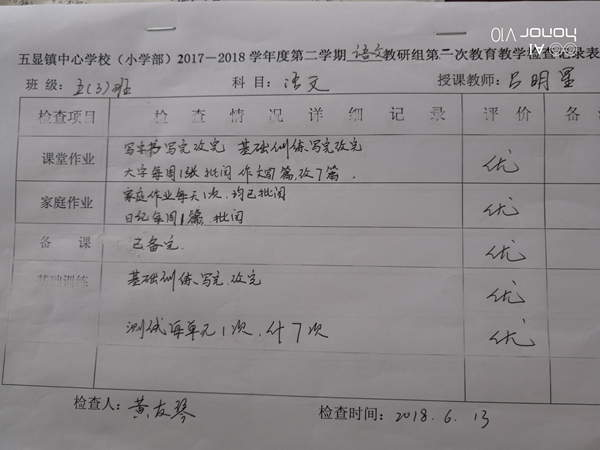 honor V10
AI
五显镇中心学校（小学部）2017—2018学年度第二学期语文教研组第一次教育教学检查记录表
班 级：五(3)班 科 目：语文 授课教师：吕明星
检查项目 检 查 情 况 详 细 记 录 评 价 备
课堂作业 写字书写完改完 基础训练写完改完 优
大字每周1张 批阅 作文7篇，改7篇．
家庭作业 家庭作业每天1次，均已批阅 优
日记每周1篇，批阅
备 课 已备完． 优
基础训练 基础训练、写完、改完 优
测试每单元1次，计7次 优
检查人：黄友琴 检查时间：2018.6.13